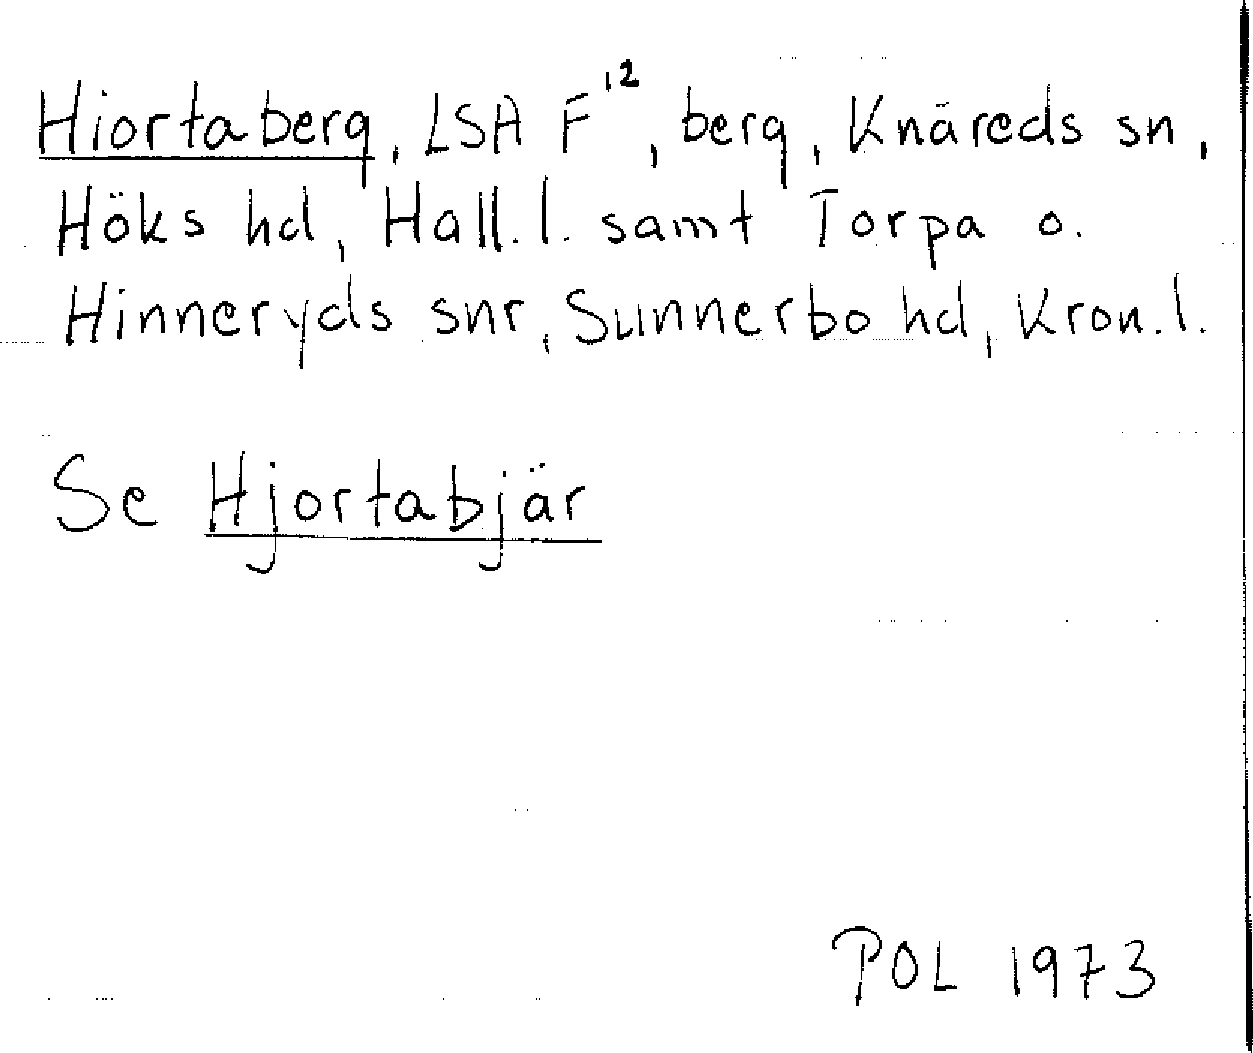 Hiortaberg, LSA F12, berg, Knäreds sn,
Höks hd, Hall. l. samt Torpa o.
Hinneryds snr, Sunnerbo hd, Kron. l.
Se Hjortabjär
POL 1973